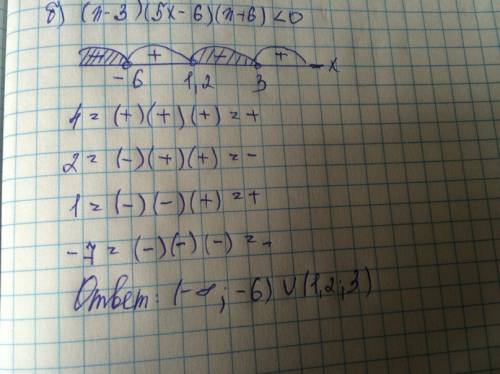 б) (x-3)(5x-6)(x+6)<0
+ +
-6 1,2 3 x
4 = (+)(+)(+) = +
2 = (-)(+)(+) = -
1 = (-)(-)(+) = +
-7 = (-)(-)(-) = -
Ответ: (-∞; -6) ∪ (1,2; 3)